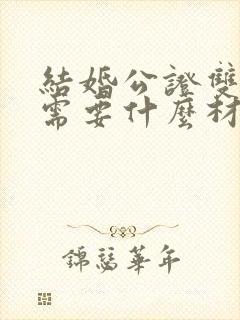 結婚公證雙
需要什麼材
錦瑟華年